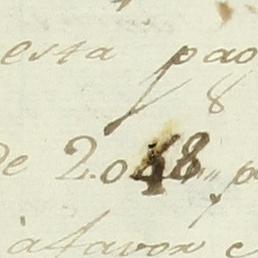 esta pao
8
de 2.048,, p
afavor e